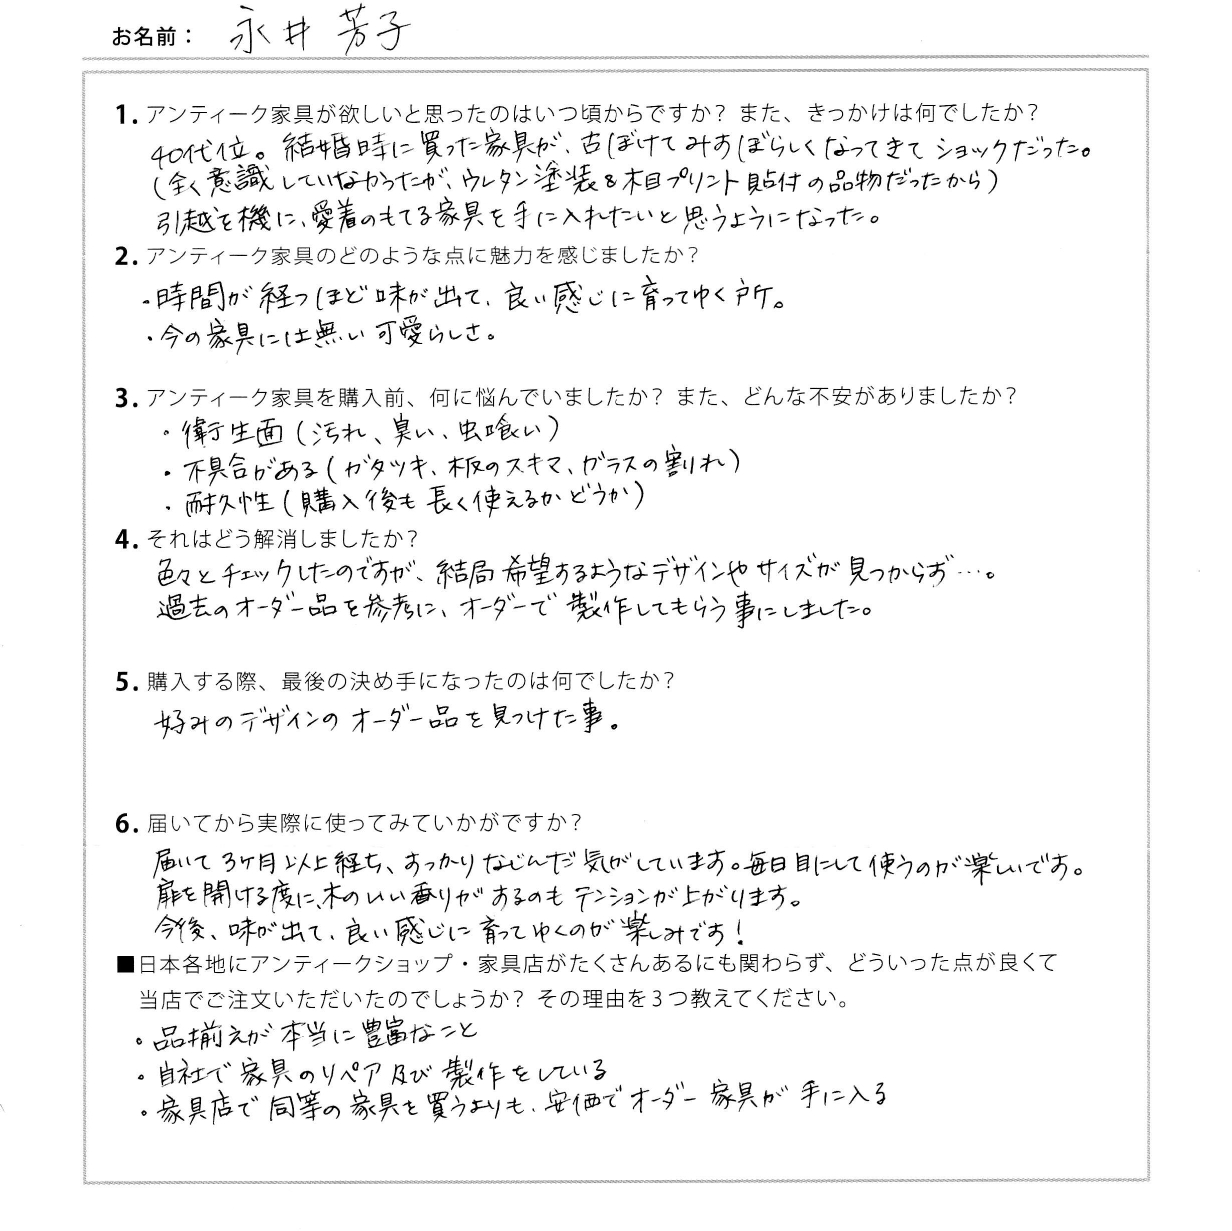 お名前： 永井 芳子
1. アンティーク家具が欲しいと思ったのはいつ頃からですか？ また、きっかけは何でしたか？
40代位。結婚時に買った家具が、古ぼけてみすぼらしくなってきてショックだった。
（全く意識していなかったが、ウレタン塗装&木目プリント貼付の品物だったから）
引越を機に、愛着のもてる家具を手に入れたいと思うようになった。
2. アンティーク家具のどのような点に魅力を感じましたか？
・時間が経つほど味が出て、良い感じに育ってゆく所。
・今の家具には無い可愛らしさ。
3. アンティーク家具を購入前、何に悩んでいましたか？ また、どんな不安がありましたか？
・衛生面（汚れ、臭い、虫喰い）
・不具合がある（ガタツキ、板のスキマ、ガラスの割れ）
・耐久性（購入後も長く使えるかどうか）
4. それはどう解消しましたか？
色々とチェックしたのですが、結局希望するようなデザインやサイズが見つからず…。
過去のオーダー品を参考に、オーダーで製作してもらう事にしました。
5. 購入する際、最後の決め手になったのは何でしたか？
好みのデザインのオーダー品を見つけた事。
6. 届いてから実際に使ってみていかがですか？
届いて3ヶ月以上経ち、すっかりなじんだ気がしています。毎日目にして使うのが楽しいです。
扉を開ける度に、木のいい香りがするのもテンションが上がります。
今後、味が出て、良い感じに育ってゆくのが楽しみです！
■日本各地にアンティークショップ・家具店がたくさんあるにも関わらず、どういった点が良くて
当店でご注文いただいたのでしょうか？ その理由を３つ教えてください。
・品揃えが本当に豊富なこと
・自社で家具のリペア及び製作をしている
・家具店で同等の家具を買うよりも、安価でオーダー家具が手に入る